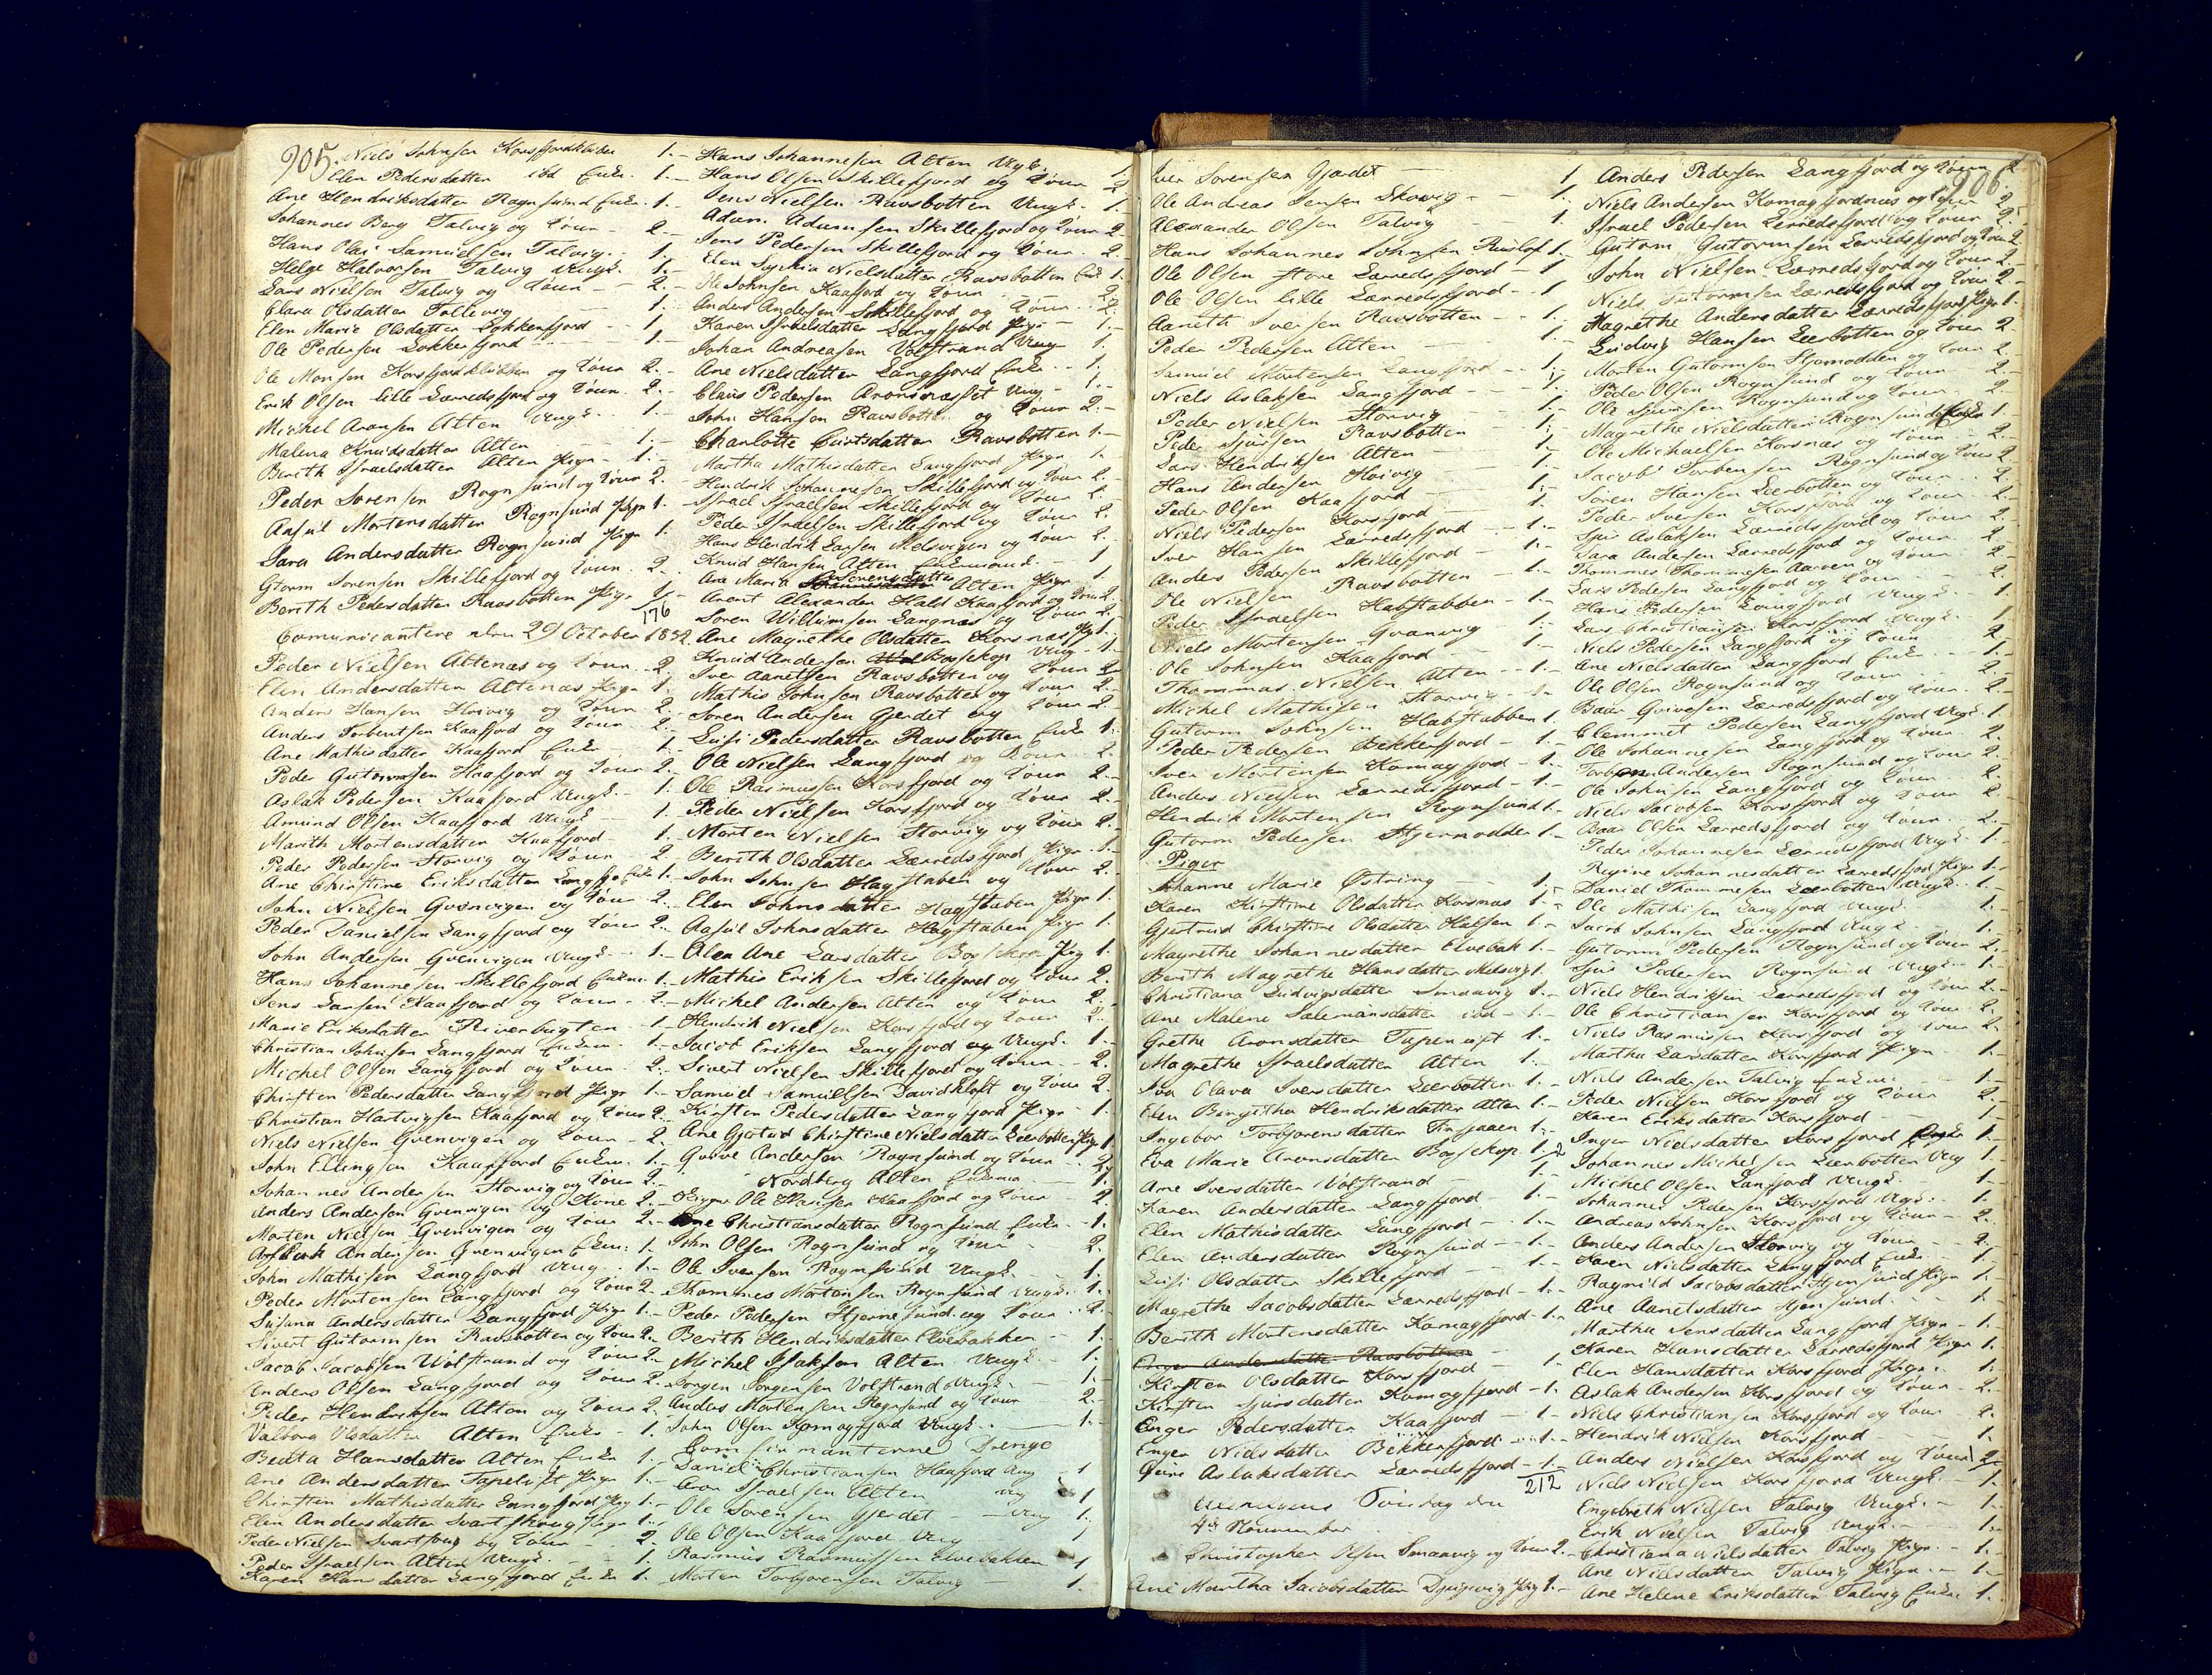 905.
Niels Johnsen Korsfjordklubben 1.-
Elen Pedersdatter ibd Enke. 1.-
Ane Hendriksdatter Rognsund Enke. 1.-
Johannes Berg Talvig og Kone - 2.-
Hans Olai Samuelsen Talvig. 1.
Helge Halvorsen Talvig Ungk. 1.-
Lars Nielsen Talvig og Kone - 2.-
Clara Olsdatter Tollevig 1.
Elen Marie Olsdatter Lokkerfjord - 1.
Ole Pedersen Lokkerfjord 1.-
Ole Monsen Korsfjordklubben og Kone 2.-
Erik Olsen Lille Lerredsfjord og Kone. 2.-
Michel Aronsen Alten Ungk. 1.-
Malena Knudsdatter Alten 1.-
Berith Israelsdatter Alten Pige - 1.-
Peder Sørensen Rognsund og Kone 2.
Mortensdatter Rognsund Pige 1.
Sara Andersdatter Rognsund Pige 1.
Gtorm Sørensen Skillefjord og Kone. 2.
Berith Pedersdatter Ravsbotten Pige 1.
176
Comunicantere den 29 October 1832.
Peder Nielsen Altenæs og Kone. 2.
Elen Andersdatter Altenæs Pige 1.
Anders Hansen Hoivig og Kone 2.
Anders Torbentsen Kaafjord og Kone 2.
Ane Mathisdatter Kaafjord Enke 1.
Peder Gutormsen Kaafjord og Kone 2.
Aslak Pedersen Kaafjord Ungk. 1.
Amund Olsen Kaafjord Ungk 1.
Marith Mortensdatter Kaafjord 1.
Peder Pedersen Storvig og Kone 2.
Ane Christine Eriksdatter Langfjo Enke 1.
John Nielsen Qvenvigen og Kone 2.
Peder Danielsen Langfjord og Kone 2.
John Andersen Qvenvigen Ungk 1.
Hans Johannesen Skillefjord Enkem. 1.
Jens Larsen Kaafjord og Kone. 2.
Marie Eriksdatter Riverbugten 1.
Christian Johnsen Langfjord Enkem. 1.
Michel Olsen Langfjord og Kone. 2.
Chirsten Pedersdatter Langfjord Pige 1.
Christian Hartvigsen Kaafjord og Kone 2.
Niels Nielsen Qvenvigen og Kone - 2.
John Ellingsen Kaafjord Enkem. 1.
Johannes Andersen Storvig og Kone 2.
Anders Andersen Qvenvigen og Kone 2.
Morten Nielsen Qvenvigen og Kone 2.
Andersen Qvenvigen Enkem: 1.
John Mathisen Langfjord Ung 1.
Peder Mortensen Langfjord og Kone 2.
Susana Andersdatter Langfjord Pige 1.
Sivert Gutormsen Ravsbotten og Kone 2.
Jacob Jacobsen Wolstrand og Kone 2.
Anders Olsen Langfjord og Kone 2.
Peder Hendriksen Alten og Kone 2.
Valborg Olsdatter Alten Enke - 1.
Beata Hansdatter Alten Enke 1.
Ane Andersdatter Tapeluft Pige 1.
Chirsten Mathisdatter Langfjord Pig 1.
Elen Andersdatter Svartskoug Pige 1.
Peder Nielsen Svartskoug og Kone - 2.
Peder Israelsen Alten Ungk. 1.
Karen Hansdatter Langfjord Enke 1.
Hans Johannesen Alten Ugk. 1.
Hans Olsen Skillefjord og Kone 2
Jens Nielsen Ravsbotten Ungk. 1.
Adam Adamsen Skillefjord og Kone 2
Jens Pedersen Skillefjord og Kone. 2.
Elen Sophia Nielsdatter Ravsbotten Enk 1.
Ole Johnsen Kaafjord og Kone 2
Anders Andersen Skillefjord og Kone 2.
Karen Israelsdatter Langfjord Pige 1.
Johan Andreasen Volstrand Ung 1.
Ane Nielsdatter Langfjord Enke 1.
Claus Pedersen Aronsnæsset Ung - 1.
John Hansen Ravsbotten og Kone 2.
Charlotte Curtsdatter Ravsbotten 1.
Martha Mathisdatter Langfjord Pige 1.
Hendrik Johannesen Skillefjord og Kone 2.
Israel Israelsen Skillefjord og Kone 2.
Peder Israelsen Skillefjord og Kone 2.
Hans Hendrik Larsen Melsvigen og Kone 2.
Knud Hansen Alten Enkemand. 1
Ane Maria Sørensdatter Alten Pige 1
Arent Alexander Hald Kaafjord og Kone 2.
Søren Willumsen Langnæs og Kone 2.
Ane Magrethe Olsdatter Korsnæs Pig 1.
Knud Andersen Bossekop Ung 1.
Iver Aanetsen Ravsbotten og Kone 2
Mathis Johnsen Ravsbotten og Kone 2.
Søren Andersen Gjerdet og Kone 2
Lusi Pedersdatter Ravsbotten Enke 1.
Ole Nielsen Langfjord og Kone 2
Ole Rasmussen Korsfjord og Kone 2.
Peder Nielsen Korsfjord og Kone 2.
Morten Nielsen Storvig og Kone 2.
Berith Olsdatter Lerredsfjord Pige 1.
John Johnsen Hagstaben og Kone 2.
Elen Johnsdatter Hagstaben Pige 1.
Johnsdatter Hagstaben Pige 1
Alea Ane Larsdatter Bossekop Pig 1.
Mathis Eriksen Skillefjord og Kone 2.
Michel Andersen Alten og Kone 2.
Hendrik Nielsen Korsfjord og Kone 2.
Jacob Eriksen Langfjord og Ungk. 1
Sivert Nielsen Skillefjord og Kone. 2.
Samuel Samuelsen Davidkloft og Kone 2.
Kirsten Pedersdatter Langfjord Pige - 1.
Ane Gjertrud Chirstine Nielsdatter Leerbotten Pige 1
Andersen Rognsund og Kone 2.
Nordberg Alten Enkema 1
Ole Hansen Kaafjord og Kone 2
Ane Christiansdatter Rognsund Enke. 1.
John Olsen Rognsund og Kone 2.
Ole Iversen Rognsund Ungk. 1.
Thommes Mortensen Rognsund Ungk. 1.
Peder Pedersen Stjernesund og Kone 2.
Berith Hendriksdatter Elvebakken 1.
Michel Isaksen Alten Ungk. 1.
Jørgen Jørgensen Volstrand Ungk. 1.
Anders Mortensen Rognsund og Kone 2.
John Olsen Komagfjord Ungk. 1.
Comfirmanterne Drenge
Daniel Christiansen Kaafjord Ung 1
Aron Israelsen Alten Ung 1
Ole Sørensen Gjerdet Ung 1.
Ole Olsen Kaafjord Ung 1
Rasmus Rasmussen Elvebakken 1
Morten Torbjørensen Talvig 1.
906.
Iver Sørensen Gjærdet 1
Ole Andreas Jensen Skovig 1.
Alexander Olsen Talvig 1.
Hans Johannes Johnsen 1.
Ole Olsen store Lerredsfjord - 1
Ole Olsen lille Lærredsfjord - 1
Aaneth Iversen Ravsbotten 1.
Peder Pedersen Alten 1.
Samuel Mortensen Langfjord 1.
Niels Aslaksen Langfjord 1.
Peder Nielsen Storvig 1.
Peder Sjursen Ravsbotten 1.
Lars Hendriksen Alten 1.
Hans Andersen Hoivig 1.
Peder Olsen Kaafjord 1.
Niels Pedersen Korsfjord 1.
Iver Hansen Lærredsfjord 1.
Anders Pedersen Skillefjord 1.
Ole Nielsen Ravsbotten 1.
Peder Israelsen Habstabben - 1.
Niels Mortensen Qvanvig 1.
Ole Johnsen Kaafjord 1.
Thommas Nielsen Alten 1.
Michel Mathisen Storvig 1.
Gutorm Johnsen Habstabben 1.
Peder Pedersen Bekkerfjord - 1.
Iver Mortensen Komagfjord - 1.
Anders Nielsen Lærredsfjord - 1.
Hendrik Mortensen Rognsund 1.
Gutorm Pedersen Stjernodden 1.
Piger
Johanne Marie Østring 1.
Karen Kirstine Olsdatter Korsnæs 1.
Gjertrud Chirstine Olsdatter Halsen 1.
Magrethe Johannesdatter Elvebak 1.
Berith Magrethe Hansdatter Melsvig 1.
Christiana Ludvigsdatter Smaavig 1.
Ane Malene Salamansdatter ibd - 1.
Grethe Aronsdatter Tapeluft 1.
Magrethe Israelsdatter Alten 1.
Olava Iversdatter Leerbotten 1.
Elen Birgitha Hendriksdatter Alten 1.
Ingebor Torbjørensdatter 1.
Eva Marie Aronsdatter Bossekop. 1.
Ane Iversdatter Volstrand 1
Karen Andersdatter Langfjord 1.
Elen Mathisdatter Langfjord 1.
Elen Andersdatter Rognsund 1.
Lusi Olsdatter Skillefjord 1.
Magrethe Jacobsdatter Lærredsfjord - 1.
Berith Mortensdatter Komagfjord - 1.
Andersdatter Ravsbotten
Kirsten Olsdatter Korsfjord 1.
Kirsten Sjursdatter Komagfjord - 1.
Enger Pedersdatter Kaafjord - 1.
Enger Nielsdatter Bekkerfjord 1.
Aslaksdatter Lærredsfjord - 1.
212
Søndag den
4de November
Christopher Olsen Smaavig og Kone 2.
Ane Martha Jacobsdatter Djupvig Pig 1.
Anders Pedersen Langfjord og Kone 2
Niels Andersen Komagfjordnæs og Kone 2
Israel Pedersen Lerredsfjord og Kone 2.
Gutorm Gutormsen Lerredsfjord og Kone 2
John Nielsen Lærredsfjord og Kone 2.
Niels Gutormsen Lærredsfjord og Kone 2
Magrethe Andersdatter Lærredsfjord Pige 1.
Ludvig Hansen Leerbotten og Kone 2
Morten Gutormsen Stjernodden og Kone 2.
Peder Olsen Rognsund og Kone 2.
Ole Sjursen Rognsund og Kone 2
Magrethe Nielsdatter Rognsund Enke 1.
Ole Michaelsen Korsnæs og Kone 2.
Jacob Torbensen Rognsund og Kone 2
Søren Hansen Leerbotten og Kone 2.
Peder Iversen Korsfjord og Kone 2.
Sjur Aslaksen Lærredsfjord og Kone 2.
Lars Andersen Lærredsfjord og Kone 2.
Thommes Thommesen Aarøen og Kone 2
Lars Pedersen Langfjord og Kone 2.
Hans Pedersen Langfjord Ungk. 1
Lars Christiansen Korsfjord Ungk. 1
Niels Pedersen Langfjord og Kone 2
Ane Nielsdatter Langfjord Enke 1.
Ole Olsen Rognsund og Kone 2
Baar Lærredsfjord og Kone 2
Clemmet Pedersen Langfjord Ungk. 1
Ole Johannesen Langfjord og Kone 2.
Andersen Rognsund og Kone 2
Ole Johnsen Langfjord og Kone 2.
Niels Jacobsen Korsfjord og Kone 2.
Baar Olsen Lærredsfjord og Kone 2.
Peder Johannesen Lerredsfjord Ungk 1.
Regine Johannesdatter Lærredsfjord Pige 1
Daniel Thommesen Leerbotten Ungk. 1.
Ole Mathisen Langfjord Ungk 1
Jacob Johnsen Langfjord Ungk 1.
Gutorm Pedersen Rognsund og Kone 2.
Sjur Pedersen Rognsund Ungk 1.
Niels Hendriksen Lerredsfjord og Kone 2
Ole Christiansen Korsfjord og Kone 2.
Niels Rasmussen Korsfjord og Kone 2.
Martha Larsdatter Korsfjord Pige 1.
Niels Andersen Talvig Enkem. 1.
Peder Nielsen Korsfjord og Kone 2.
Karen Eriksdatter Korsfjord 1
Inger Nielsdatter Korsfjord Enke 1.
Johannes Michelsen Leerbotten Ung 1
Michel Olsen Langfjord Ungk. 1.
Johannes Pedersen Korsfjord Ugk. 1.
Andreas Johnsen Korsfjord og Kone - 2.
Anders Andersen Storvig og Kone 2.
Karen Nielsdatter Langfjord Enke 1.
Ragnild Jacobsdatter Stjernsund Pige 1
Ane Aanetsdatter Stjernsund 1.
Martha Jensdatter Langfjord Pige - 1.
Karen Hansdatter Lærredsfjord Pige 1.
Elen Hansdatter Korsfjord Pige 1.
Aslak Andersen Korsfjord og Kone 2.
Niels Christiansen Korsfjord og Kone 2.
Hendrik Nielsen Korsfjord 1.
Anders Nielsen Korsfjord og Kone 2
Niels Nielsen Korsfjord Ungk. 1.
Engebreth Nielsen Talvig Ungk. 1.
Erik Nielsen Talvig Ungk. 1.
Christiana Nielsdatter Talvig Pige. 1.
Ane Nielsdatter Talvig Pige 1.
Ane Helene Eriksdatter Talvig Enke 1.